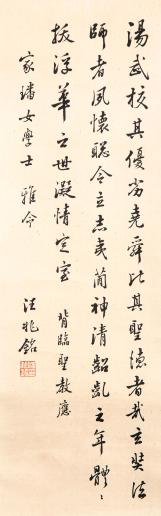 湯武校其優劣堯舜比其聖德者哉玄奘法
師者夙懷聰令立志夷簡神清齠齔之年體
拔浮華之世凝情定室 背臨聖教應
家璠女學士 雅令
汪兆銘